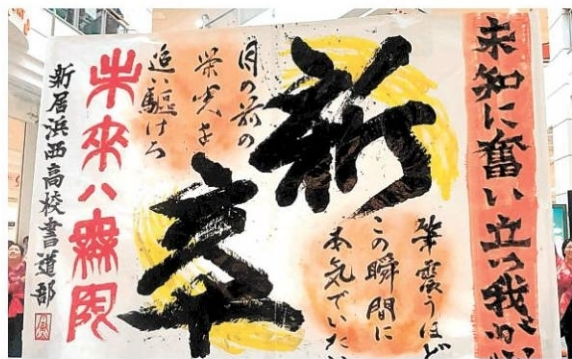 未知に奮い立つ我が
筆震うほど
この瞬間に
本気でいたい
新
目の前の
栄光を
追い駆けろ
未來ハ無限
新居浜西高校書道部